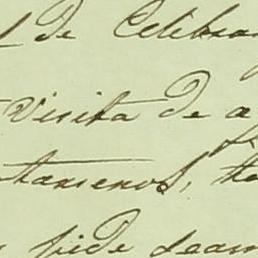 de Celebra
Visita de a
tamenos, te
pide seam